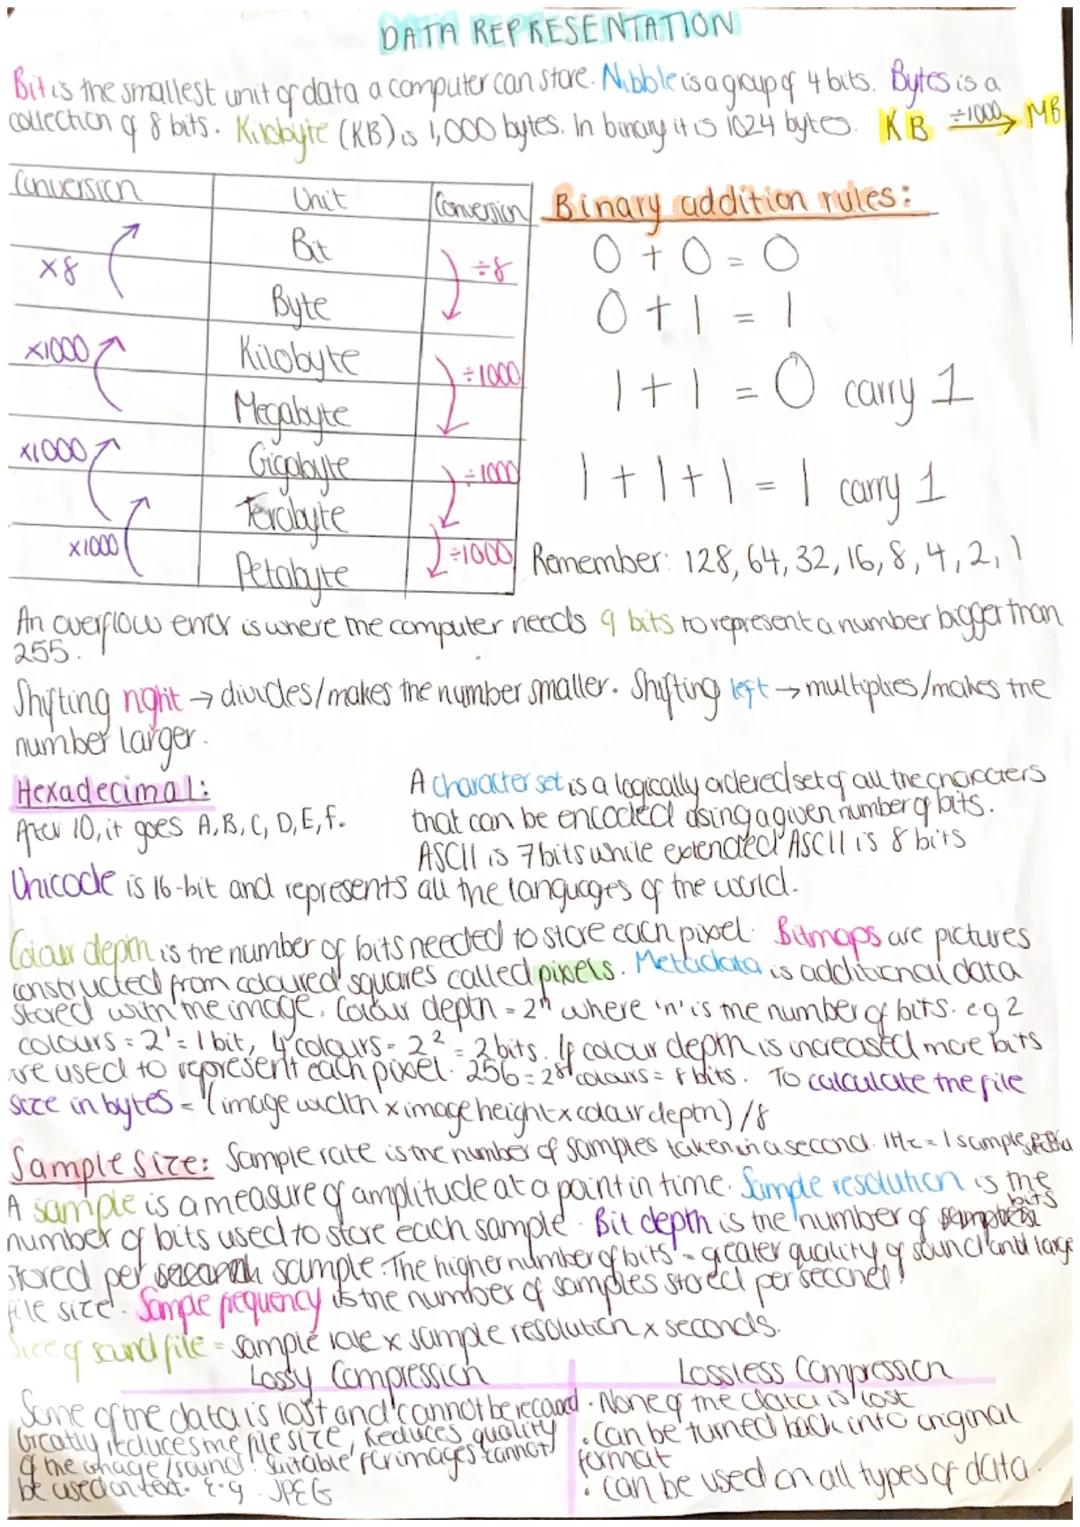 DATA REPRESENTATION
Bit is the smallest unit of data a computer can store. Nibble is a group of 4 bits. Bytes is a
collection of 8 bits. Kilobyte (KB) is 1,000 bytes. In binary it is 1024 bytes. KB ÷1000→ MB
Conversion Unit Conversion
Bit
×8 ÷8
Byte
×1000 Kilobyte ÷1000
Megabyte
×1000 Gigabyte ÷1000
Terabyte
×1000 ÷1000
Petabyte
Binary addition rules:
0 + 0 = 0
0 + 1 = 1
1 + 1 = 0 carry 1
1 + 1 + 1 = 1 carry 1
Remember: 128, 64, 32, 16, 8, 4, 2, 1
An overflow error is where the computer needs 9 bits to represent a number bigger than
255.
Shifting right → divides/makes the number smaller. Shifting left → multiplies/makes the
number larger.
Hexadecimal:
After 10, it goes A, B, C, D, E, F.
A character set is a logically ordered set of all the characters
that can be encoded using a given number of bits.
ASCII is 7 bits while extended ASCII is 8 bits
Unicode is 16-bit and represents all the languages of the world.
Colour depth is the number of bits needed to store each pixel. Bitmaps are pictures
constructed from coloured squares called pixels. Metadata is additional data
stored with the image. Colour depth = 2ⁿ where 'n' is the number of bits. e.g 2
colours = 2¹ = 1 bit, 4 colours = 2² = 2 bits. If colour depth is increased more bits
are used to represent each pixel. 256 = 2⁸ colours = 8 bits. To calculate the file
size in bytes = (image width x image height x colour depth) /8
Sample size: Sample rate is the number of samples taken in a second. 1Hz = 1 sample
A sample is a measure of amplitude at a point in time. Sample resolution is the
number of bits used to store each sample. Bit depth is the number of bits
stored per sample. The higher number of bits = greater quality of sound and large
file size. Sample frequency is the number of samples stored per second!
Size of sound file = sample rate x sample resolution x seconds.
Lossy Compression
Some of the data is lost and cannot be
Greatly reduces the file size, Reduces quality
of the image/sound. Suitable for images cannot
be used on text. e.g. JPEG
Lossless Compression
· None of the data is lost
· Can be turned back into original
format
· can be used on all types of data.